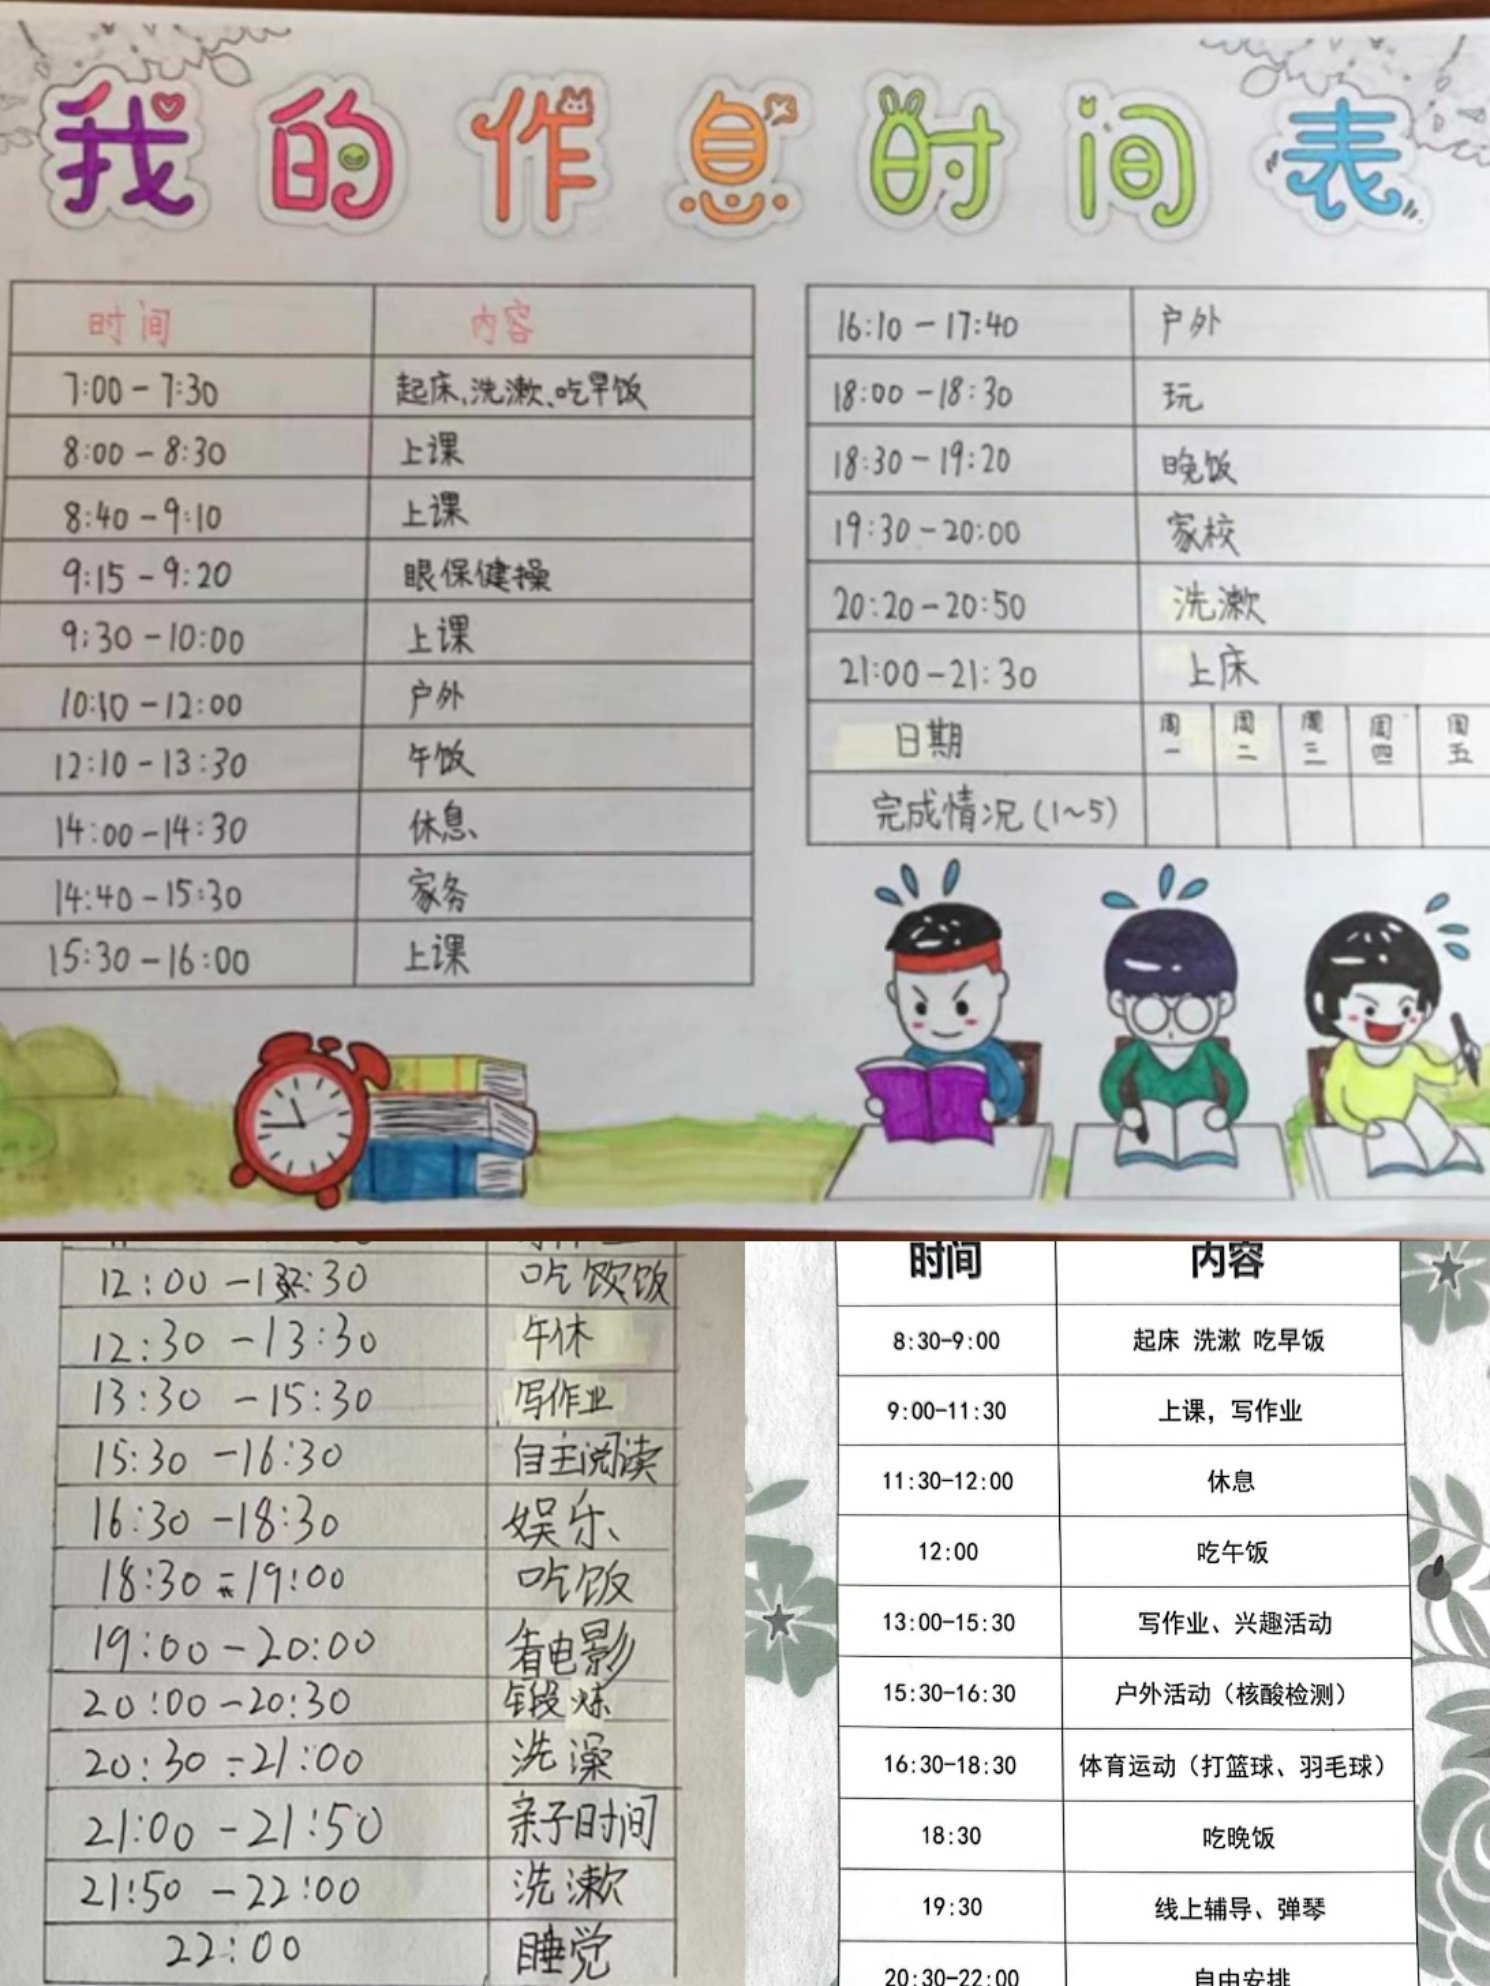 我的作息时间表
时间 内容
7:00-7:30 起床、洗漱、吃早饭
8:00-8:30 上课
8:40-9:10 上课
9:15-9:20 眼保健操
9:30-10:00 上课
10:10-12:00 户外
12:10-13:30 午饭
14:00-14:30 休息
14:40-15:30 家务
15:30-16:00 上课
16:10-17:40 户外
18:00-18:30 玩
18:30-19:20 晚饭
19:30-20:00 家校
20:20-20:50 洗漱
21:00-21:30 上床
日期 周一 周二 周三 周四 周五
完成情况(1~5)
12:00-12:30 吃饭
12:30-13:30 午休
13:30-15:30 写作业
15:30-16:30 自主阅读
16:30-18:30 娱乐
18:30-19:00 吃饭
19:00-20:00 看电影
20:00-20:30 锻炼
20:30-21:00 洗澡
21:00-21:50 亲子时间
21:50-22:00 洗漱
22:00 睡觉
时间 内容
8:30-9:00 起床 洗漱 吃早饭
9:00-11:30 上课，写作业
11:30-12:00 休息
12:00 吃午饭
13:00-15:30 写作业、兴趣活动
15:30-16:30 户外活动（核酸检测）
16:30-18:30 体育运动（打篮球、羽毛球）
18:30 吃晚饭
19:30 线上辅导、弹琴
20:30-22:00 自由安排